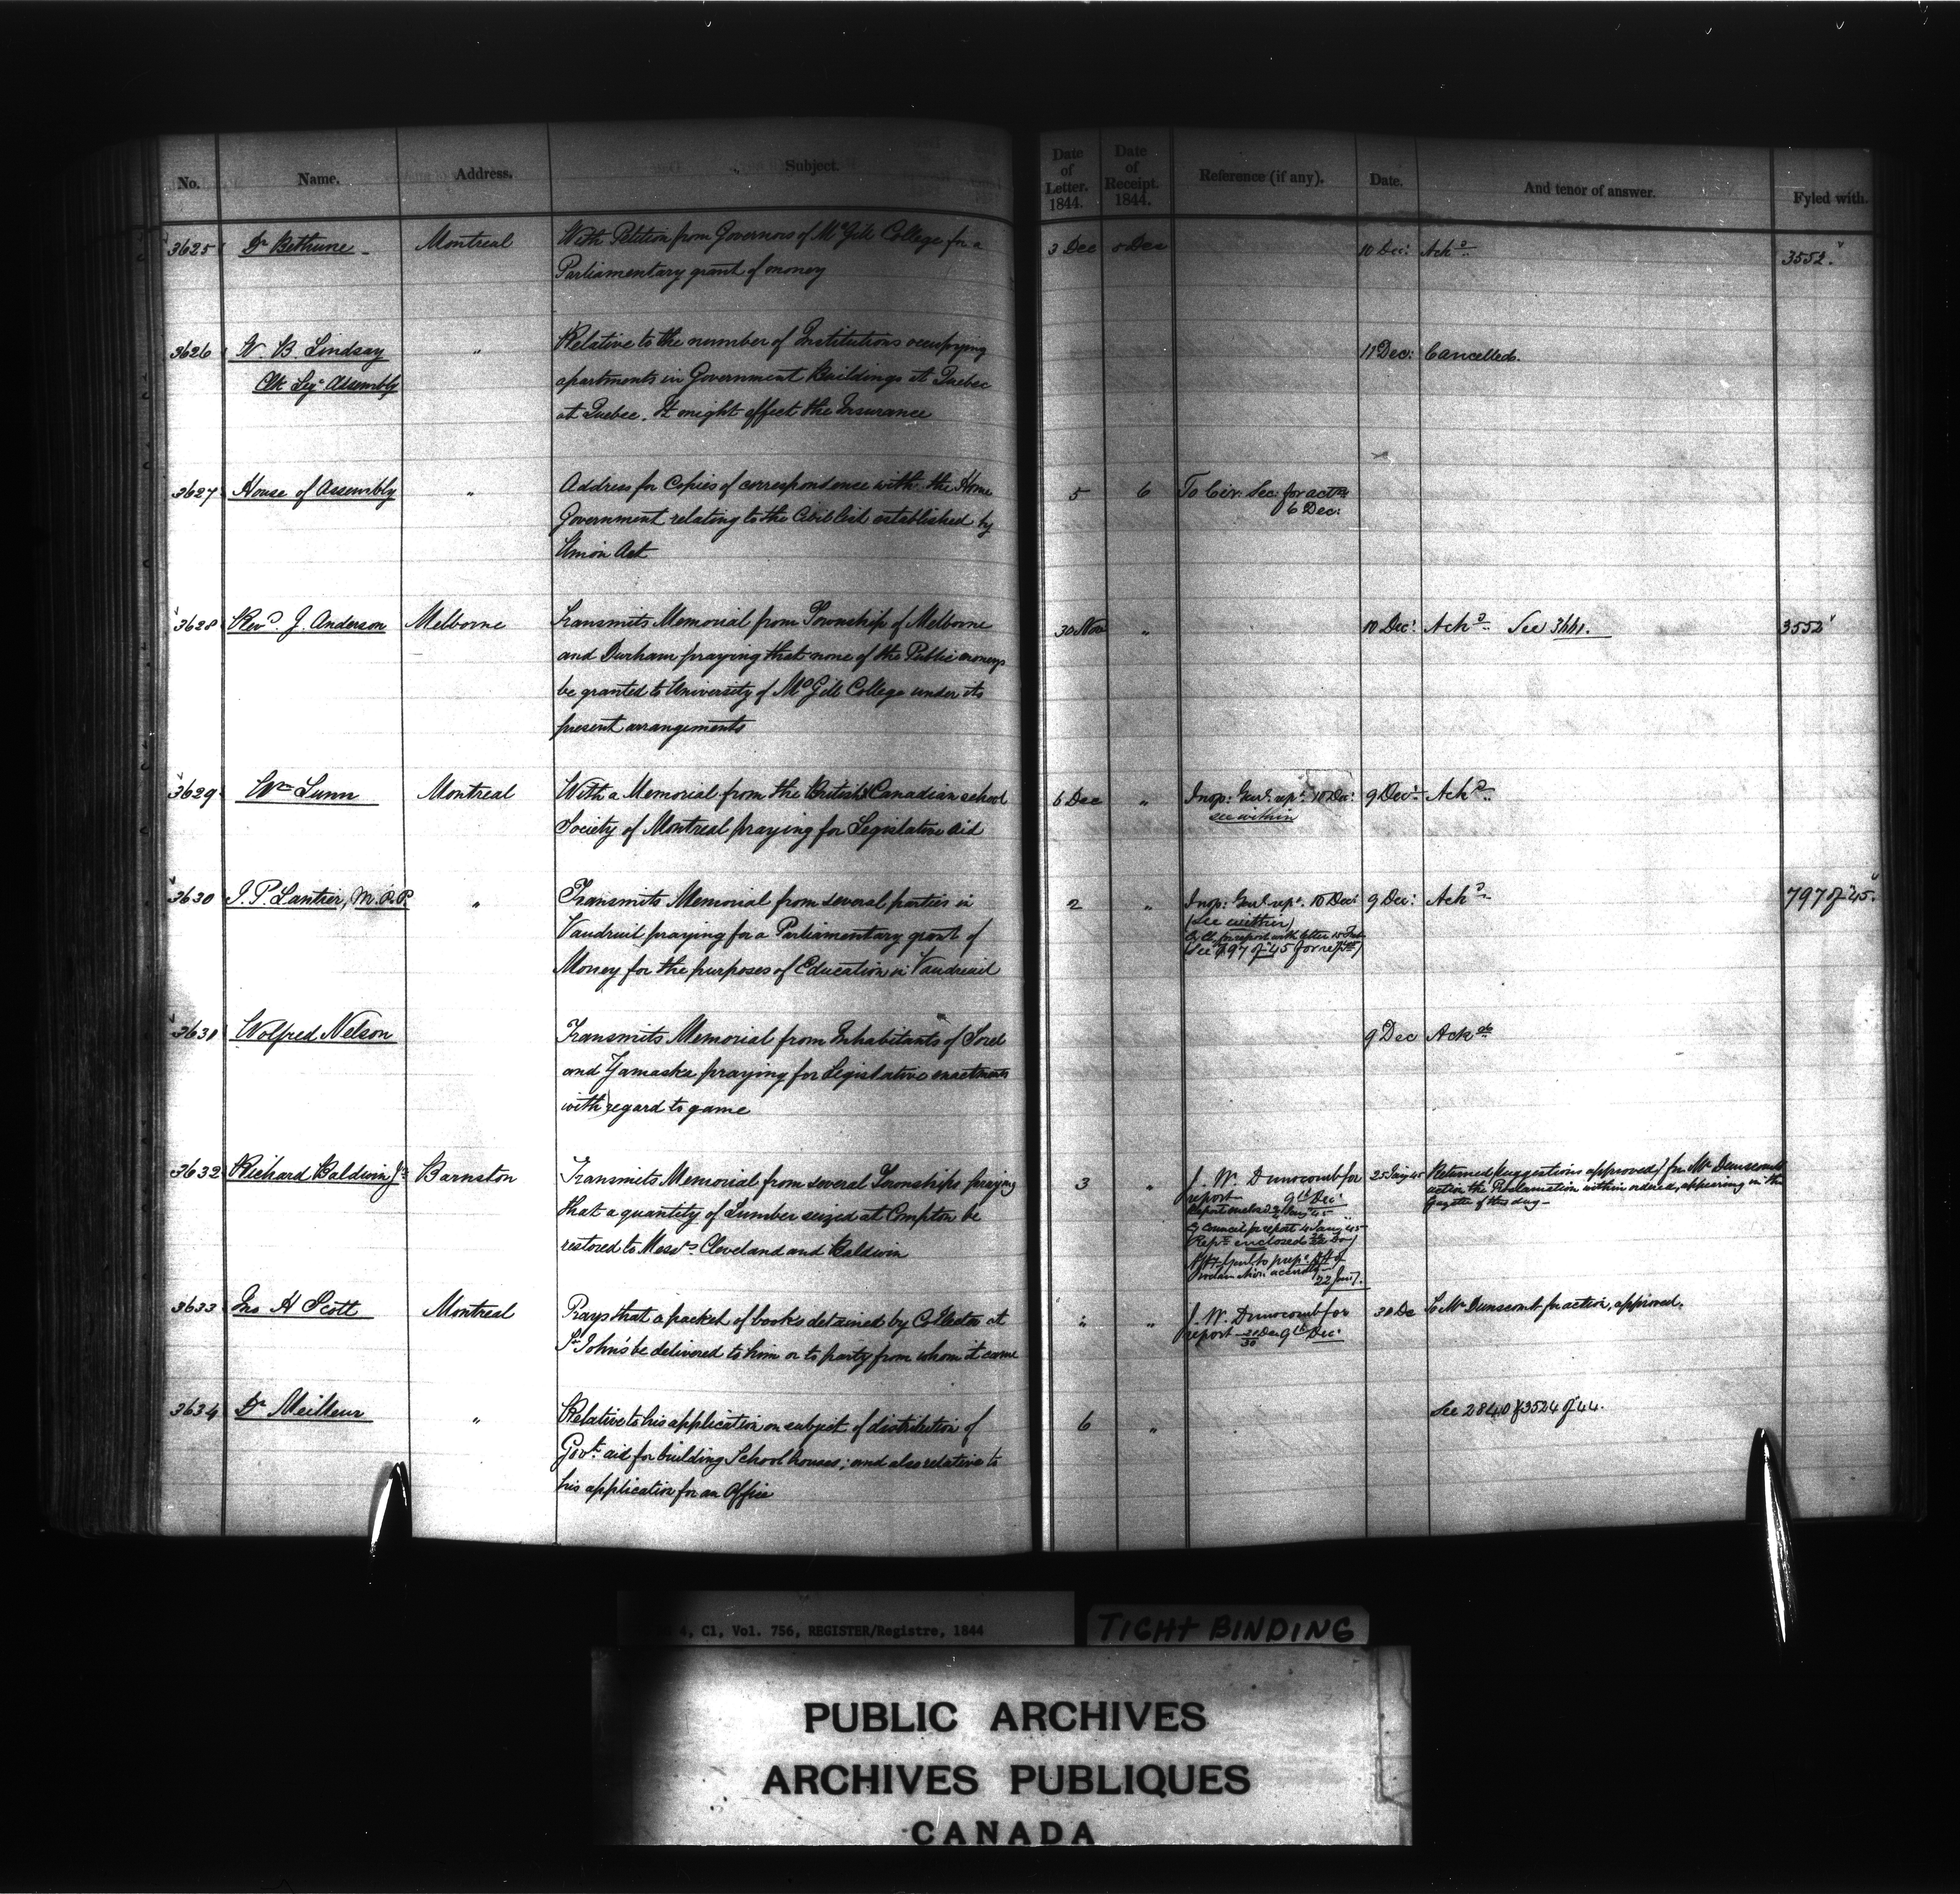 No. Name. Address. Subject. Date of Letter. 1844. Date of Receipt. 1844. Reference (if any). Date. And tenor of answer. Fyled with.
3625 Dr Bethune - Montreal With Petition from Governors of McGill College for a 3 Dec 5 Dec 10 Dec: Ackd 3552.
Parliamentary grant of money
3626 W. B. Lindsay " Relative to the number of Institutions occupying 11 Dec: Cancelled.
Clk Leg. Assembly apartments in Government Buildings at Quebec
at Quebec. It might affect the Insurance
3627 House of Assembly " Address for Copies of correspondence with the Home 5 6 To Civ: Sec: for actn
Government relating to the Civil List established by 6 Dec:
Union Act
3628 Revd. J. Anderson Melborne Transmits Memorial from Township of Melborne 30 Nov " 10 Dec: Ackd. See 3661. 3552
and Durham praying that none of the Public moneys
be granted to University of McGill College under its
present arrangements
3629 Wm Lunn Montreal With a Memorial from the British & Canadian school 6 Dec " Insp: Genl. rept. 10 Dec: 9 Decr. Ackd.
Society of Montreal praying for Legislative aid see within
3630 J. P. Lantier, M.P.P. " Transmits Memorial from several parties in 2 " Insp: Genl. rept. 10 Dec: 9 Dec: Ackd 797 of 45.
Vaudreuil praying for a Parliamentary grant of (See within)
Money for the purposes of Education in Vaudreuil (See 797 of 45 for rept)
3631 Wolfred Nelson Transmits Memorial from Inhabitants of Sorel 9 Dec Ackd
and Yamaska praying for Legislative enactments
with regard to game
3632 Richard Baldwin Jr Barnston Transmits Memorial from several Townships praying 3 " J. W. Dunscomb for 25 Jany 45 Returned (suggestions approved) for Mr Dunscomb's
that a quantity of Lumber seized at Compton be report 9th Dec: action the Proclamation within ordered, appearing in the
restored to Messrs Cleveland and Baldwin Gazette of this day-
Ex Council for report 4 Jany 45
22 Jany.
3633 Jno H Scott Montreal Prays that a packet of books detained by Collector at " " J. W. Dunscomb for 30 De To Mr Dunscomb for action, approved.
St John's be delivered to him or to party from whom it came report 9th Dec:
3634 Dr Meilleur " Relative to his application on subject of distribution of 6 " See 2840 & 3524 of 44.
Govt. aid for building School houses; and also relative to
his application for an Office
4, C1, Vol. 756, REGISTER/Registre, 1844
TIGHT BINDING
PUBLIC ARCHIVES
ARCHIVES PUBLIQUES
CANADA